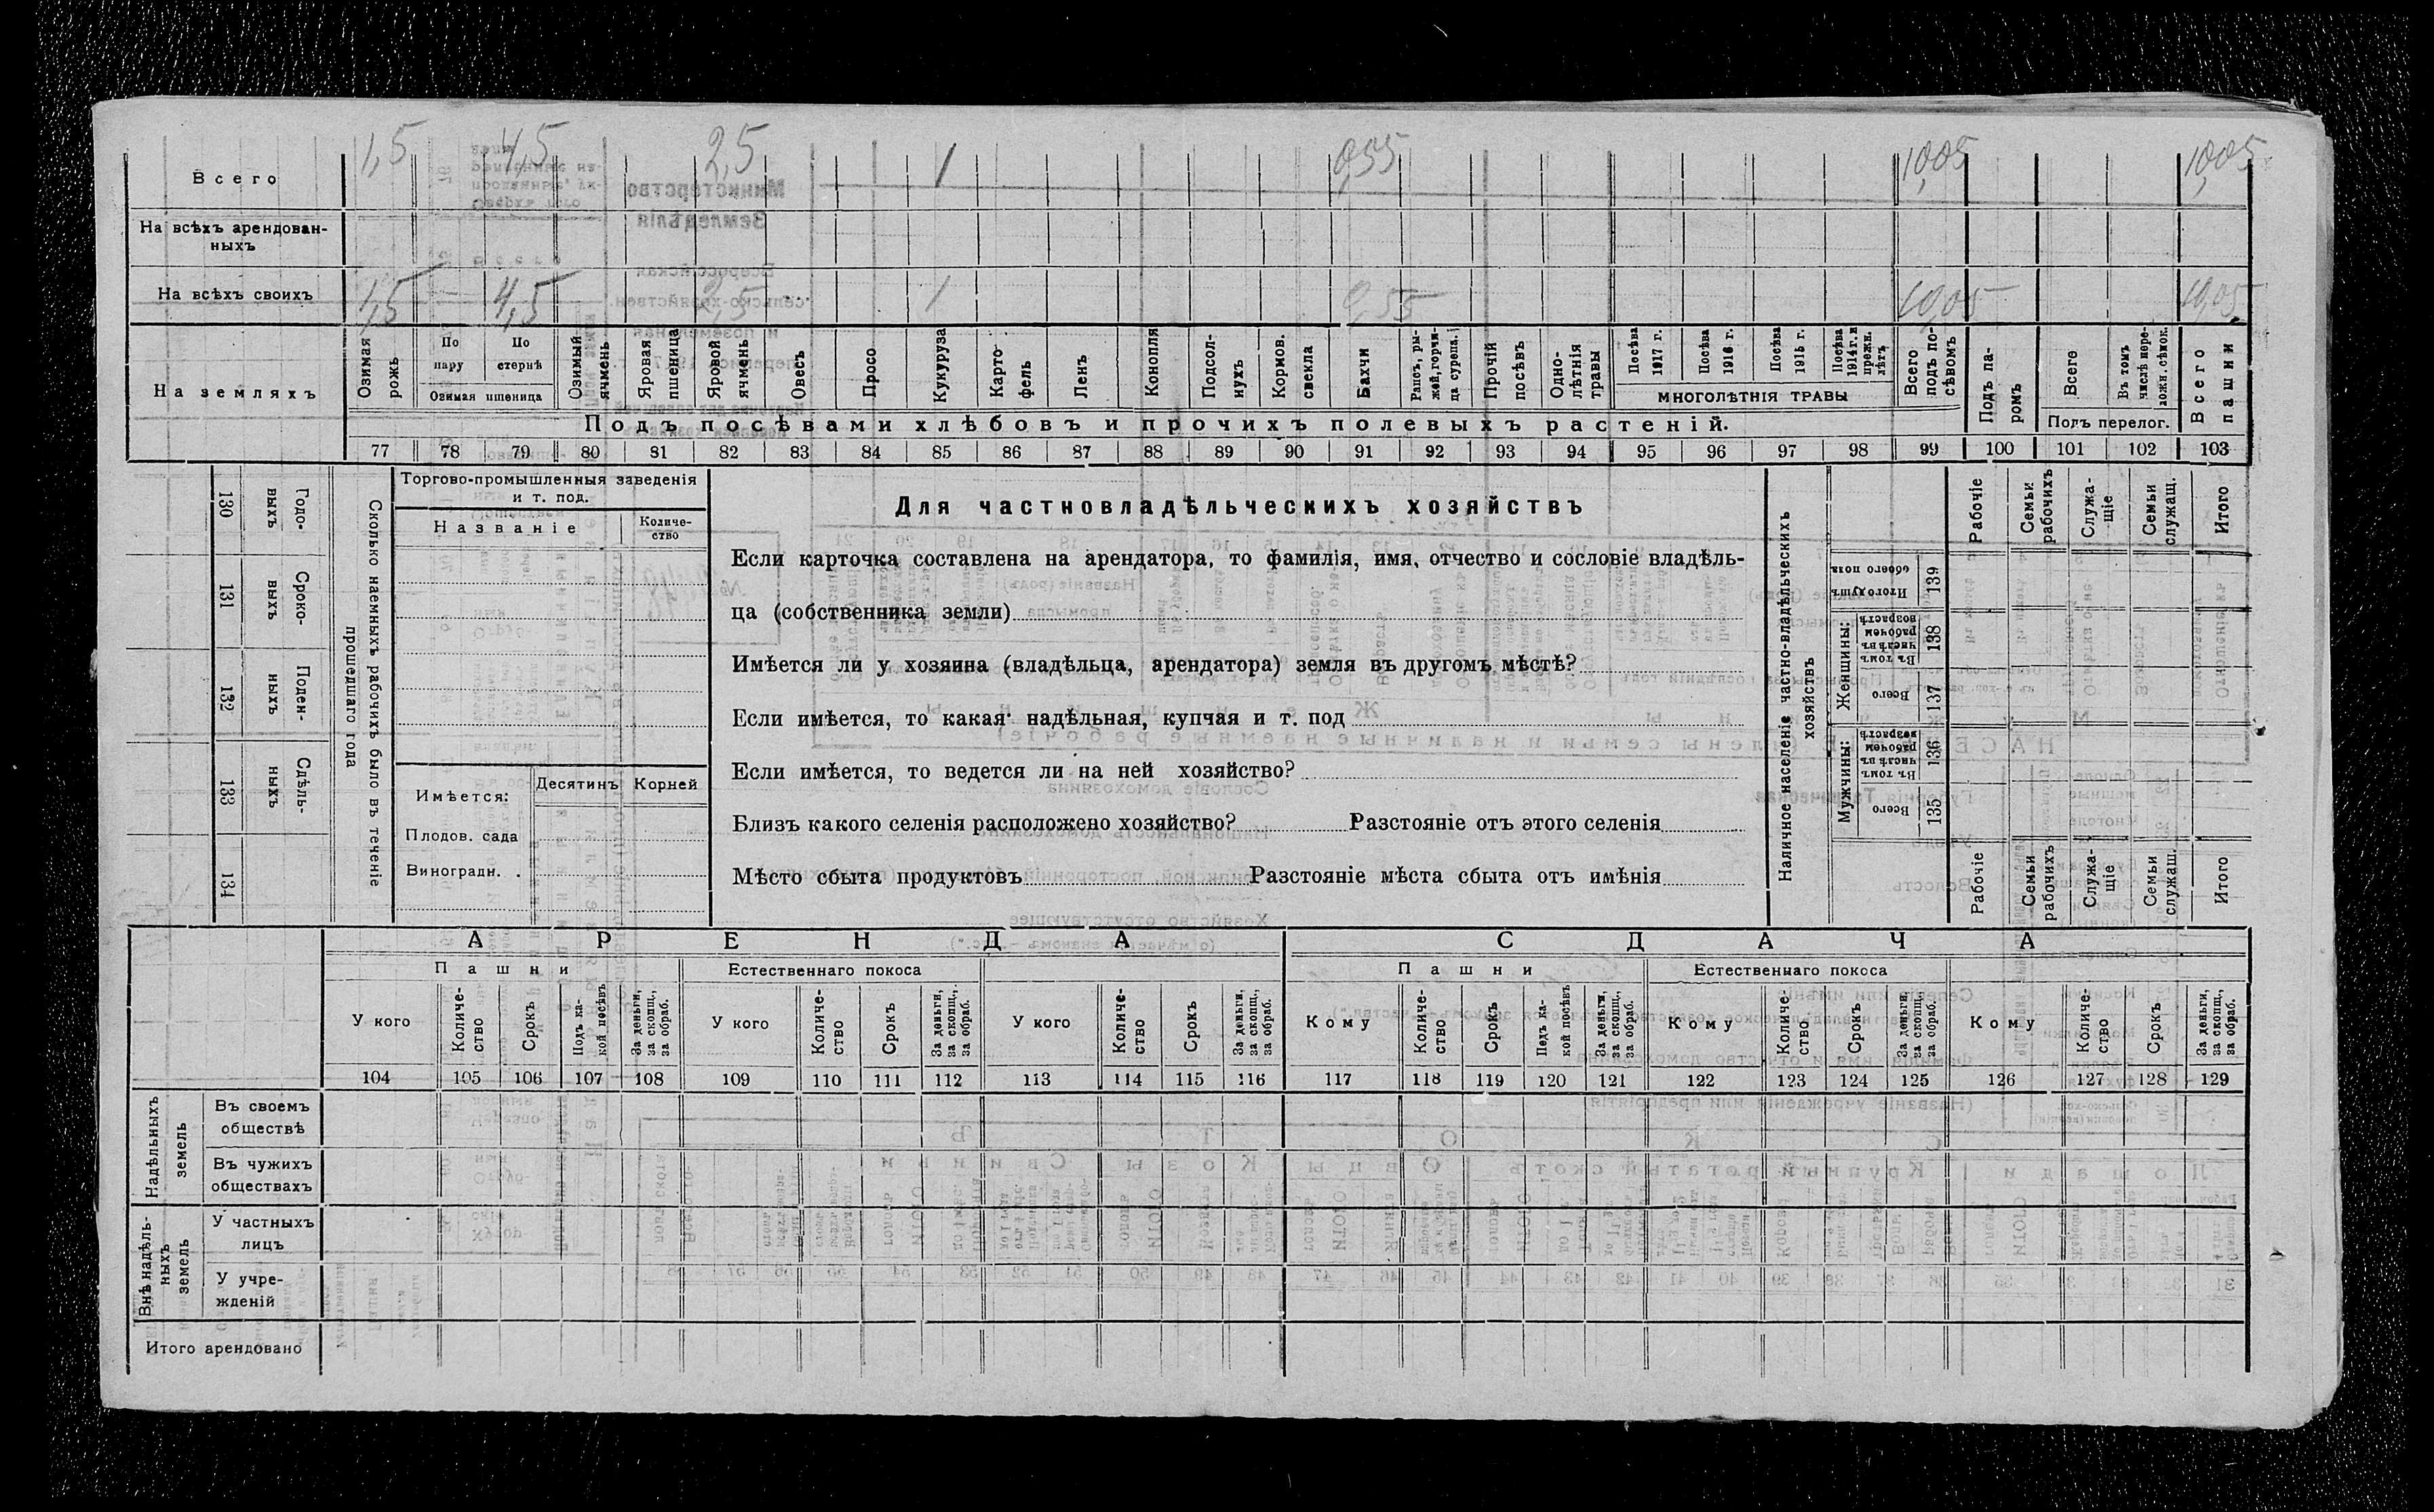 1,5 4,5 2,5 1 0,55 10,05 10,05
Всего
На всѣхъ арендован-
ныхъ
На всѣхъ своихъ 1,5 4,5 2,5 1 0,55 10,05 10,05
На земляхъ
Озимая рожь
По пару
По стернѣ
Озимая пшеница
Озимый ячмень
Яровая пшеница
Яровой ячмень
Овесъ
Просо
Кукуруза
Карто фель
Ленъ
Конопля
Подсол- нухъ
Кормов. свекла
Бахчи
Рапсъ, ры- жей, горчи- ца сурепа.
Прочій посѣвъ
Одно- лѣтнія травы
Посѣва 1917 г.
Посѣва 1916 г.
Посѣва 1915 г.
Посѣва 1914 г. и прежн. лѣтъ
МНОГОЛѢТНІЯ ТРАВЫ
Всего подъ по- сѣвомъ
Подъ па- ромъ
Всего
Въ томъ числѣ пере- ложн. сѣнок.
Подъ перелог.
Всего пашни
Подъ посѣвами хлѣбовъ и прочихъ полевыхъ растеній.
77 78 79 80 81 82 83 84 85 86 87 88 89 90 91 92 93 94 95 96 97 98 99 100 101 102 103
130 Годо- выхъ
131 Сроко- выхъ
132 Поден- ныхъ
133 Сдѣль- ныхъ
134
Сколько наемныхъ рабочихъ было въ теченіе
прошедшаго года
Торгово-промышленныя заведенія
и т. под.
Названіе
Количе-
ство
Имѣется:
Десятинъ Корней
Плодов. сада
Виноградн. .
Для частновладѣльческихъ хозяйствъ
Если карточка составлена на арендатора, то фамилія, имя, отчество и сословіе владѣль-
ца (собственника земли)
Имѣется ли у хозяина (владѣльца, арендатора) земля въ другомъ мѣстѣ?
Если имѣется, то какая: надѣльная, купчая и т. под
Если имѣется, то ведется ли на ней хозяйство?
Близъ какого селенія расположено хозяйство? Разстояніе отъ этого селенія
Мѣсто сбыта продуктовъ Разстояніе мѣста сбыта отъ имѣнія
Наличное населеніе частно-владѣльческихъ
хозяйствъ
Рабочіе
Семьи рабочихъ
Служа- щіе
Семьи служащ.
Итого
Итого душъ обоего пола 139
Женщины:
Въ томъ числѣ въ рабочемъ возрастѣ 138
Всего 137
Мужчины:
Въ томъ числѣ въ рабочемъ возрастѣ 136
Всего 135
Рабочіе
Семьи рабочихъ
Служа- щіе
Семьи служащ.
Итого
АРЕНДА СДАЧА
Пашни Естественнаго покоса Пашни Естественнаго покоса
У кого
Количе- ство
Срокъ
Подъ ка- кой посѣвъ
За деньги, за скопщ., за обраб.
У кого
Количе- ство
Срокъ
За деньги, за скопщ., за обраб.
У кого
Количе- ство
Срокъ
За деньги, за скопщ., за обраб.
Кому
Количе- ство
Срокъ
Подъ ка- кой посѣвъ
За деньги, за скопщ., за обраб.
Кому
Количе- ство
Срокъ
За деньги, за скопщ., за обраб.
Кому
Количе- ство
Срокъ
За деньги, за скопщ., за обраб.
104 105 106 107 108 109 110 111 112 113 114 115 116 117 118 119 120 121 122 123 124 125 126 127 128 129
Надѣльныхъ земель
Въ своемъ
обществѣ
Въ чужихъ
обществахъ
Внѣ надѣль- ныхъ земель
У частныхъ
лицъ
У учре-
жденій
Итого арендовано